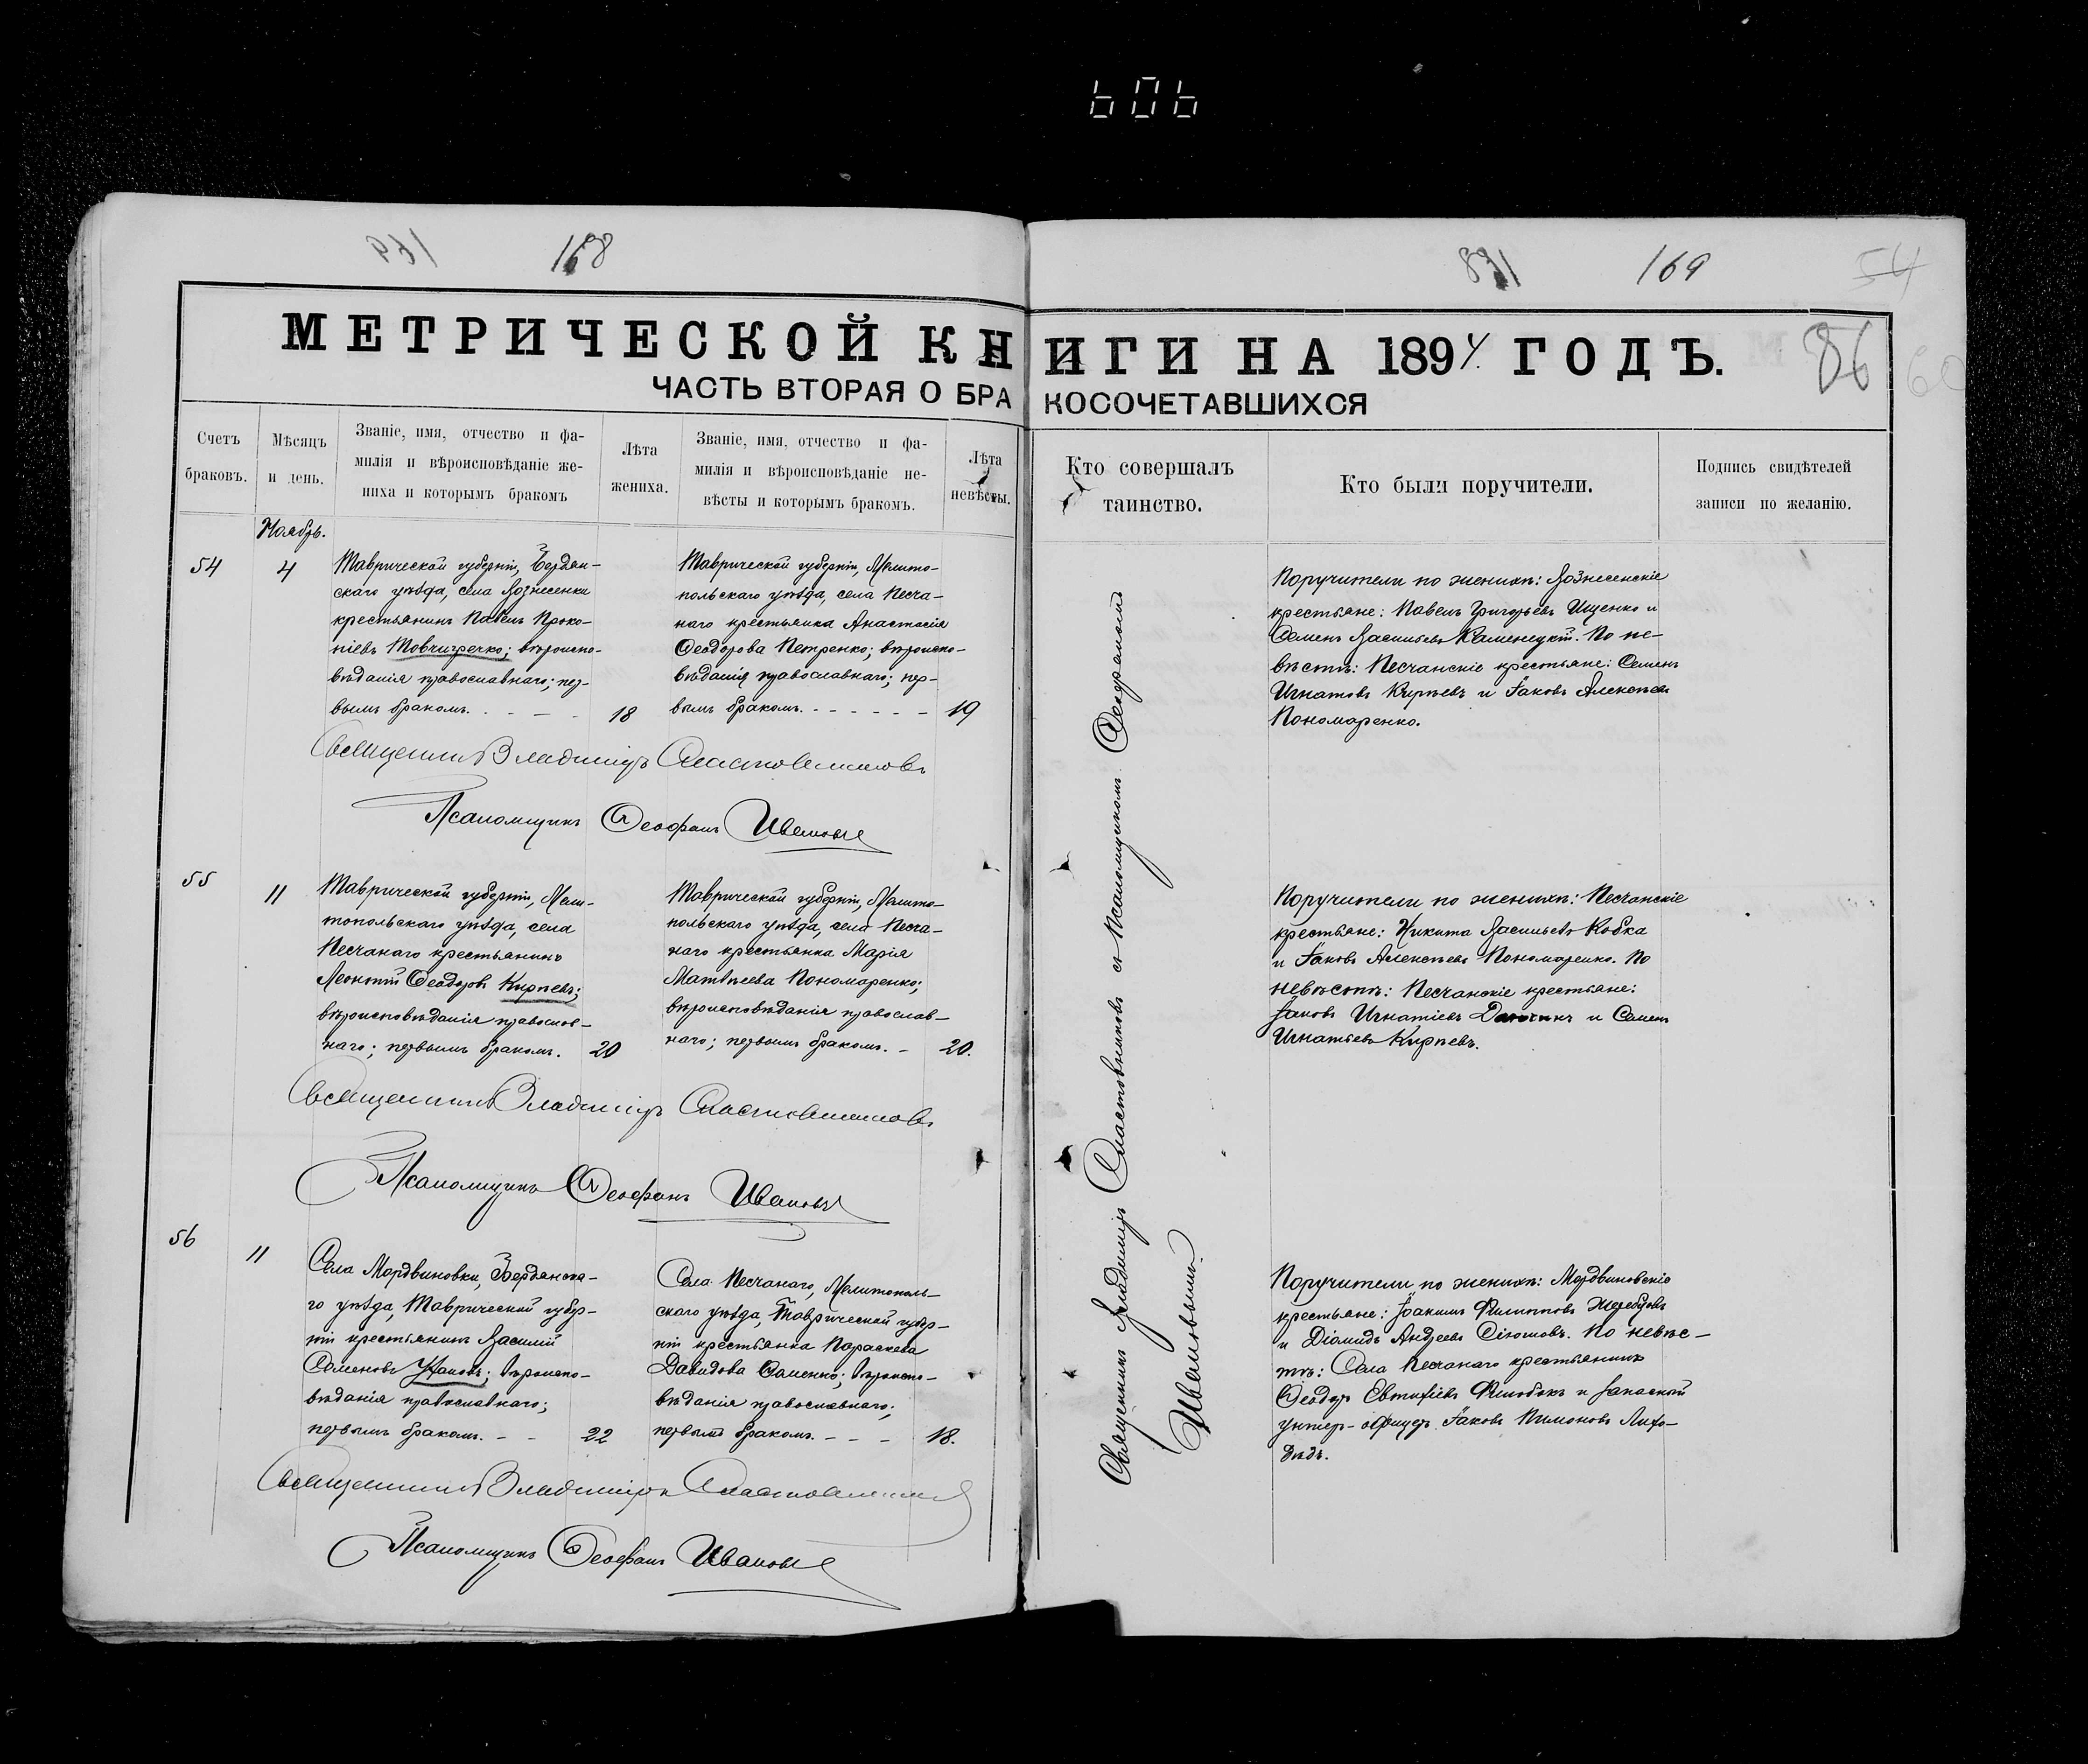 606
168
169
54
МЕТРИЧЕСКОЙ КНИГИ НА 1894 ГОДЪ.
86
60
ЧАСТЬ ВТОРАЯ О БРАКОСОЧЕТАВШИХСЯ
Счетъ браковъ.
Мѣсяцъ и день.
Званіе, имя, отчество и фа-
милія и вѣроисповѣданіе же-
ниха и которымъ бракомъ
Лѣта жениха.
Званіе, имя, отчество и фа-
милія и вѣроисповѣданіе не-
вѣсты и которымъ бракомъ.
Лѣта невѣсты.
Кто совершалъ
таинство.
Кто были поручители.
Подпись свидѣтелей
записи по желанію.
Ноябрь.
54
4
Таврической губерніи, Бердян-
скаго уѣзда, села Вознесенки
крестьянинъ Павелъ Проко-
піевъ Товчигречко; вѣроиспо-
вѣданія православнаго; пер-
вымъ бракомъ.
18
Таврической губерніи, Мелито-
польскаго уѣзда, села Песча-
наго крестьянка Анастасія
Ѳеодорова Петренко; вѣроиспо-
вѣданія православнаго; пер-
вымъ бракомъ.
19
Священникъ Владиміръ Сластовниковъ
Псаломщикъ Ѳеофанъ Ивановъ
Поручители по женихѣ: Вознесенскіе
крестьяне: Павелъ Григорьевъ Ищенко и
Семенъ Васильевъ Каменецкій. По не-
вѣстѣ: Песчанскіе крестьяне: Семенъ
Игнатовъ Кирѣевъ и Іаковъ Алексѣевъ
Пономаренко.
55
11
Таврической губерніи, Мели-
топольскаго уѣзда, села
Песчанаго крестьянинъ
Леонтій Ѳеодоровъ Кирѣевъ;
вѣроисповѣданія православ-
наго; первымъ бракомъ.
20
Таврической губерніи, Мелито-
польскаго уѣзда, села Песча-
наго крестьянка Марія
Матвѣева Пономаренко;
вѣроисповѣданія православ-
наго; первымъ бракомъ.
20.
Священникъ Владиміръ Сластовниковъ
Псаломщикъ Ѳеофанъ Ивановъ
Поручители по женихѣ: Песчанскіе
крестьяне: Никита Васильевъ Кобка
и Іаковъ Алексѣевъ Пономаренко. По
невѣстѣ: Песчанскіе крестьяне:
Іаковъ Игнатіевъ и Семенъ
Игнатьевъ Кирѣевъ.
56
11
Села Мордвиновки, Бердянска-
го уѣзда, Таврической губер-
ніи крестьянинъ Василій
Семеновъ Усановъ; вѣроиспо-
вѣданія православнаго;
первымъ бракомъ.
22
Села Песчанаго, Мелитополь-
скаго уѣзда, Таврической губер-
ніи крестьянка Параскева
Давидова Саменко; вѣроиспо-
вѣданія православнаго;
первымъ бракомъ.
18.
Священникъ Владиміръ Сластовниковъ
Псаломщикъ Ѳеофанъ Ивановъ
Поручители по женихѣ: Мордвиновскіе
крестьяне: Іоакимъ Филиповъ Жеребцовъ
и Діомидъ Андреевъ. По невѣс-
тѣ: Села Песчанаго крестьянинъ
Ѳеодоръ Евтихіевъ и запасный
унтеръ-офицеръ Іаковъ Пимоновъ Лихо-
дѣдъ.
Священникъ Владиміръ Сластовниковъ съ псаломщикомъ Ѳеофаномъ
Ивановымъ.